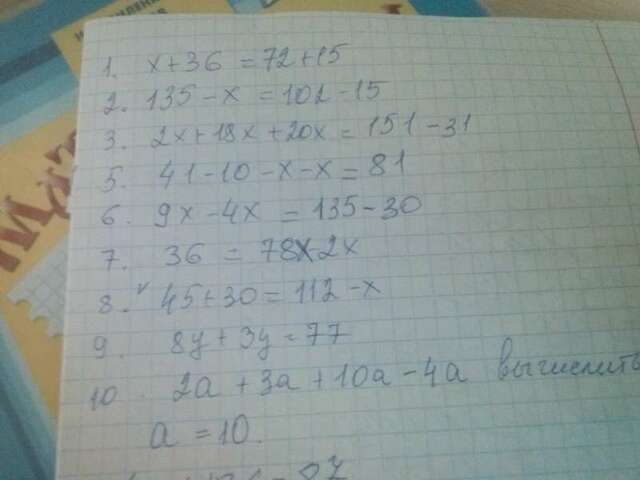 1. x+36 = 72+15
2. 135-x = 102-15
3. 2x+18x+20x = 151-31
5. 41-10-x-x = 81
6. 9x-4x = 135-30
7. 36 = 78x-2x
8. 45+30 = 112-x
9. 8y+3y = 77
10. 2a+3a+10a-4a вычислить
a = 10.